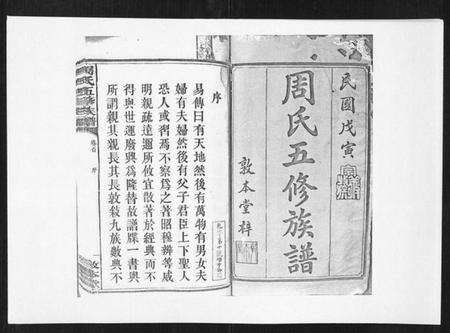 民國戊寅
周氏五修族譜
敦本堂梓
序
易傳曰有天地然後有萬物有男女夫
婦有夫婦然後有父子君臣上下聖人
恐人或習焉不察爲之著昭穆辨等咸
明親疏達邇所攸宜散著於經典而不
得與世運廢興爲隆替故譜牒一書與
所謂親其親長其長敦敍九族數典不
周氏五修族譜
卷首 序
敦本堂